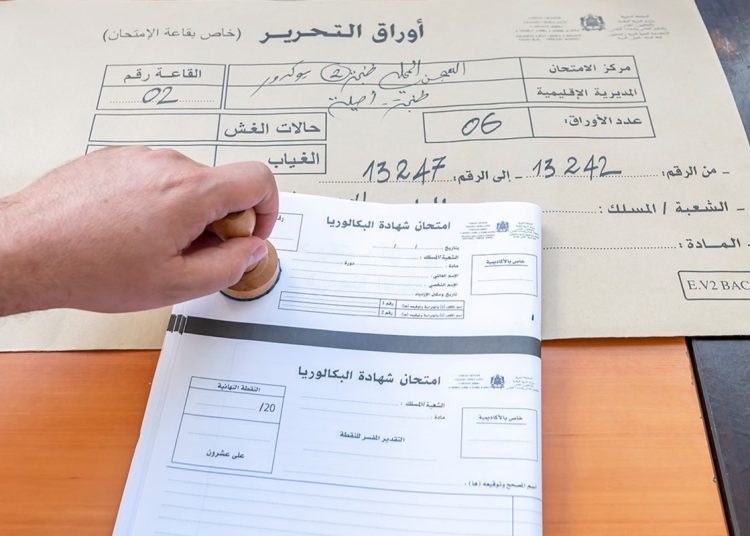 أوراق التحرير (خاص بقاعة الإمتحان)
مركز الامتحان
المديرية الإقليمية
طنجة - أصيلة
القاعة رقم
02
عدد الأوراق: 06
حالات الغش
الغياب
- من الرقم: 13242 إلى الرقم: 13247
- الشعبة / المسلك:
- المادة:
E.V2 BAC
امتحان شهادة البكالوريا
خاص بالأكاديمية
بتاريخ: / /
الشعبة المسلك:
مادة: دورة:
الإسم العائلي:
الإسم الشخصي:
تاريخ ومكان الازدياد:
رقم 1
رقم 2
امتحان شهادة البكالوريا
خاص بالأكاديمية
الشعبة المسلك:
مادة:
التقدير المفسر للنقطة
النقطة النهائية
/20
على عشرون
اسم المصحح وتوقيعه (ها):